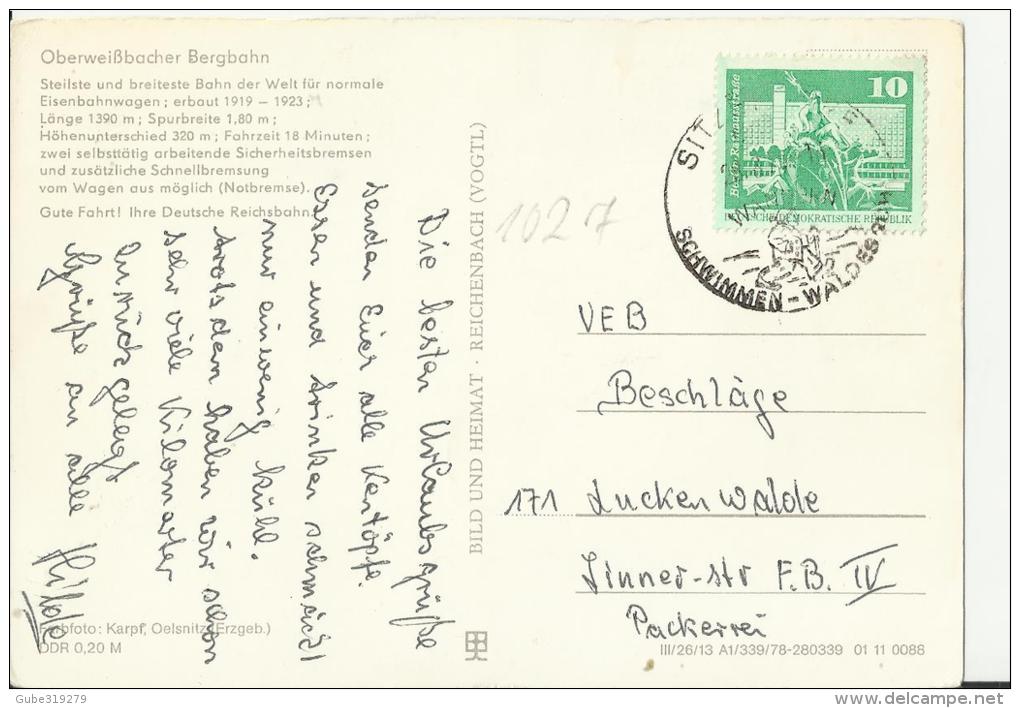 Oberweißbacher Bergbahn
Steilste und breiteste Bahn der Welt für normale
Eisenbahnwagen; erbaut 1919 – 1923;
Länge 1390 m; Spurbreite 1,80 m;
Höhenunterschied 320 m; Fahrzeit 18 Minuten;
zwei selbsttätig arbeitende Sicherheitsbremsen
und zusätzliche Schnellbremsung
vom Wagen aus möglich (Notbremse).
Gute Fahrt! Ihre Deutsche Reichsbahn.
Die besten Urlaubsgrüße
senden Euch alle
Essen und trinken schmeckt
nur ein wenig kühl.
trotzdem haben wir schon
sehr viele Kilometer
zurück gelegt
Grüße an alle
Hilde
Farbfoto: Karpf, Oelsnitz (Erzgeb.)
DDR 0,20 M
BILD UND HEIMAT · REICHENBACH (VOGTL)
1027
10
Berlin, Rathausstraße
DEUTSCHE DEMOKRATISCHE REPUBLIK
SITZ
WANDERN
SCHWIMMEN – WALDESRUH
VEB
Beschläge
171 Luckenwalde
Jinner-str F.B. IV
Packerrei
III/26/13 A1/339/78-280339 01 11 0088
Gube319279
www.delcampe.net